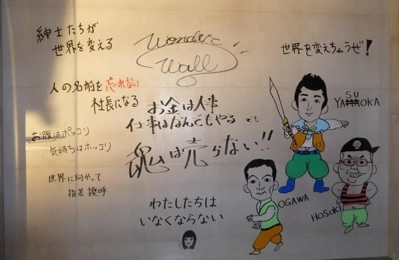 紳士たちが
世界を変える
Wonder
Wall
世界を変えちゃうぜ!
人の名前を忘れない
社長になる
お金は人事
仕事はなんでもやる
魂は売らない!!
お腹はポッコリ
気持ちはホッコリ
世界に向かって
指差換呼
わたしたちは
いなくならない
SU
YA OKA
OGAWA
HOSOKI